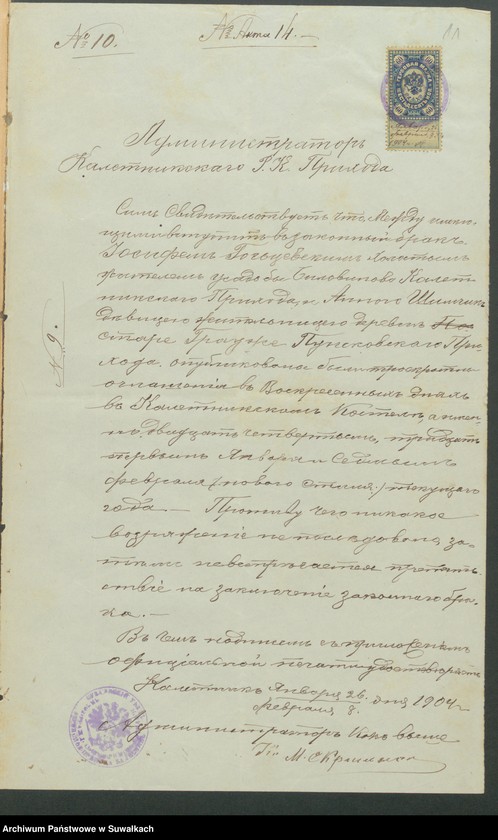 № 10.
№ Акта 14.
11
Администраторъ
Калетникскаго Р. К. Прихода
Симъ Свидѣтельствуетъ что Между имею-
щими вступить въ законный бракъ
Іосифомъ холостымъ
жителемъ усадьбы Калет-
никскаго Прихода, и Анною
дѣвицею жительницею деревни
старе Пунсковскаго При-
хода, опубликованы были троекратныя
оглашенія въ Воскресенныхъ дняхъ
въ Калетникскомъ Костелѣ, а имен-
но, двадцать четвертымъ, тридцать
первымъ Января и Седьмымъ
февраля (новаго стиля) текущаго
года — Противу чего никакое
возраженіе не последовало, за-
тѣмъ невстрѣчается препят-
ствіе на заключеніе законнаго бра-
ка. —
Въ чемъ подписомъ съ приложеніемъ
официальной печати удостовѣряю
Калетникъ Января 26 дня 1904 г.
февраля 8.
Администраторъ Какъ выше
№ 9.
Archiwum Państwowe w Suwałkach